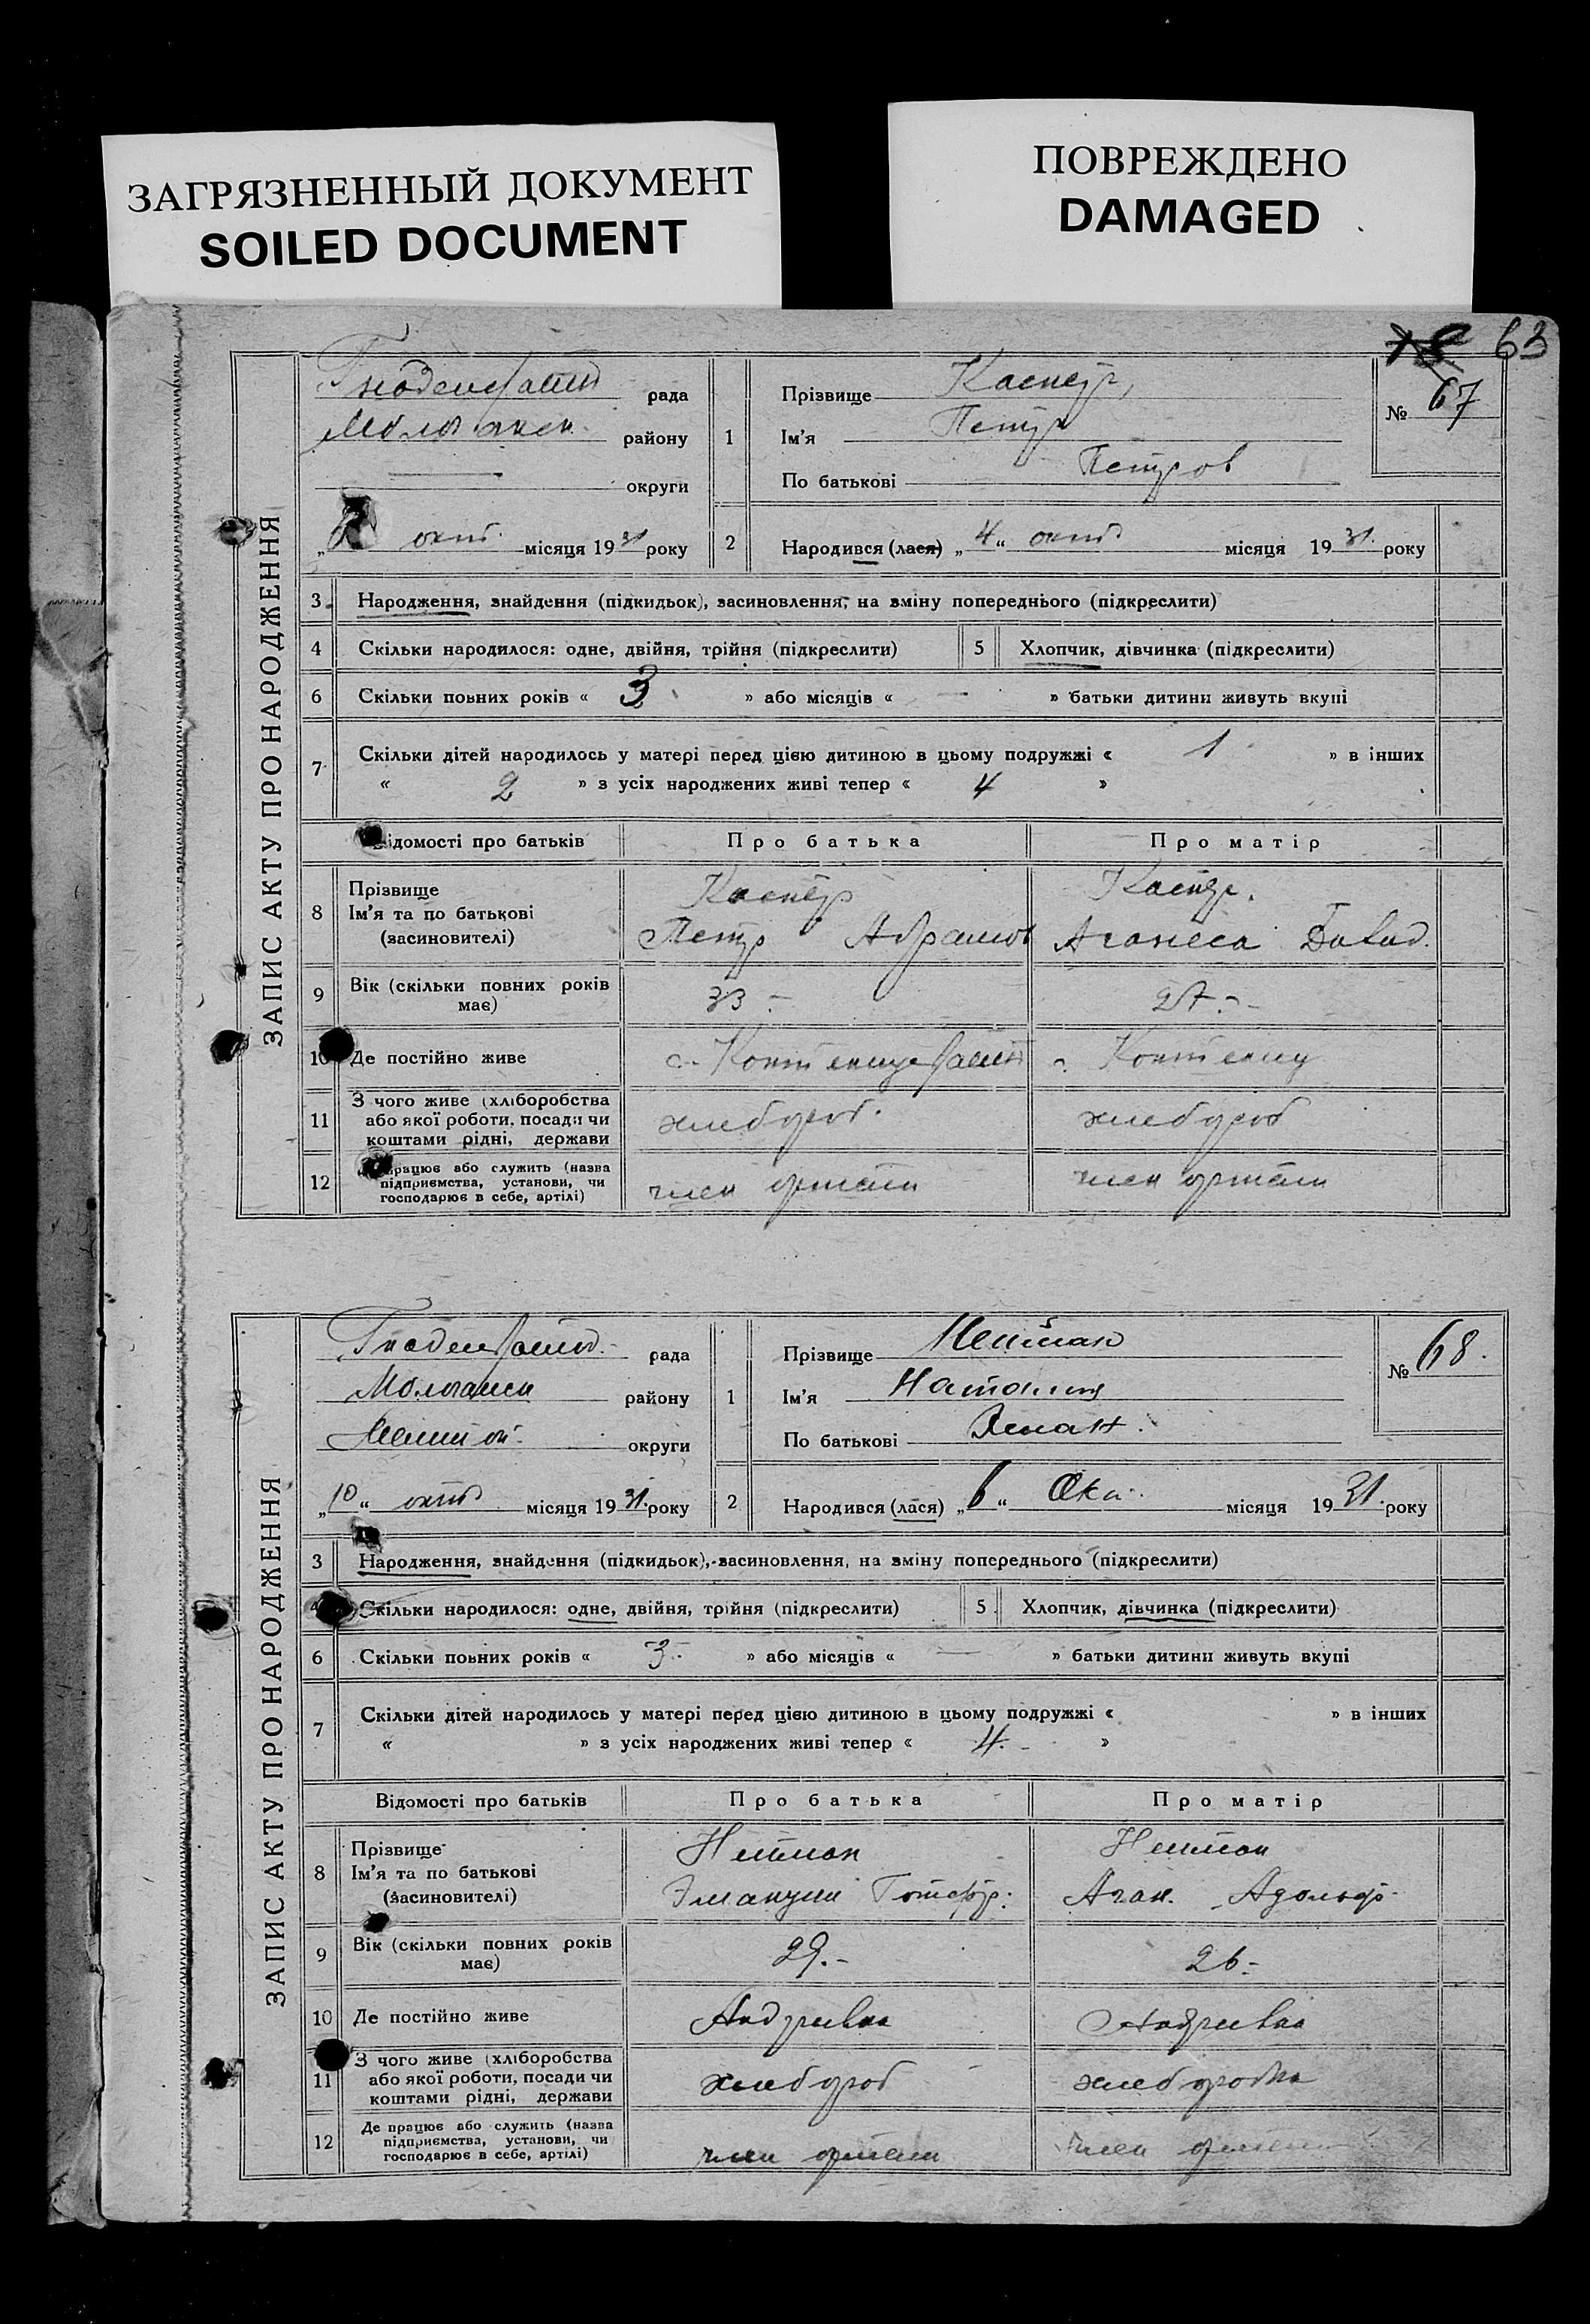 ЗАГРЯЗНЕННЫЙ ДОКУМЕНТ
SOILED DOCUMENT
ПОВРЕЖДЕНО
DAMAGED
63
ЗАПИС АКТУ ПРО НАРОДЖЕННЯ
рада
району
округи
окт. місяця 1931 року
1 Прізвище Каспер,
Ім'я Петр
По батькові Петров
№ 67
2 Народився (лася) „4“ окт місяця 1931. року
3 Народження, знайдення (підкидьок), засиновлення, на зміну попереднього (підкреслити)
4 Скільки народилося: одне, двійня, трійня (підкреслити) 5 Хлопчик, дівчинка (підкреслити)
6 Скільки повних років « 3 » або місяців « — » батьки дитини живуть вкупі
7 Скільки дітей народилось у матері перед цією дитиною в цьому подружжі « 1 » в інших
« 2 » з усіх народжених живі тепер « 4 »
Відомості про батьків Про батька Про матір
8 Прізвище Каспер Каспер.
Ім'я та по батькові
(засиновителі) Петр Абрамов Аганеса Давид.
9 Вік (скільки повних років має) 33 – 27. –
10 Де постійно живе
11 З чого живе (хліборобства
або якої роботи, посади чи
коштами рідні, держави хлебороб. хлебороб
12 працює або служить (назва
підприємства, установи, чи
господарює в себе, артілі) член артели член артели
ЗАПИС АКТУ ПРО НАРОДЖЕННЯ
рада
району
округи
„10“ окт місяця 1931. року
1 Прізвище Нейман
Ім'я Наталия
По батькові
№ 68.
2 Народився (лася) „6“ Окт. місяця 1931. року
3 Народження, знайдення (підкидьок), засиновлення, на зміну попереднього (підкреслити)
4 Скільки народилося: одне, двійня, трійня (підкреслити) 5 Хлопчик, дівчинка (підкреслити)
6 Скільки повних років « 3. » або місяців « — » батьки дитини живуть вкупі
7 Скільки дітей народилось у матері перед цією дитиною в цьому подружжі « » в інших
« » з усіх народжених живі тепер « 4. – »
Відомості про батьків Про батька Про матір
8 Прізвище Нейман Нейман
Ім'я та по батькові
(засиновителі) Эмануил Готфр. Аган. Адольф.
9 Вік (скільки повних років має) 29. – 26. –
10 Де постійно живе Андривка Андривка
11 З чого живе (хліборобства
або якої роботи, посади чи
коштами рідні, держави хлебороб хлеборобка
12 Де працює або служить (назва
підприємства, установи, чи
господарює в себе, артілі) член артели член артели